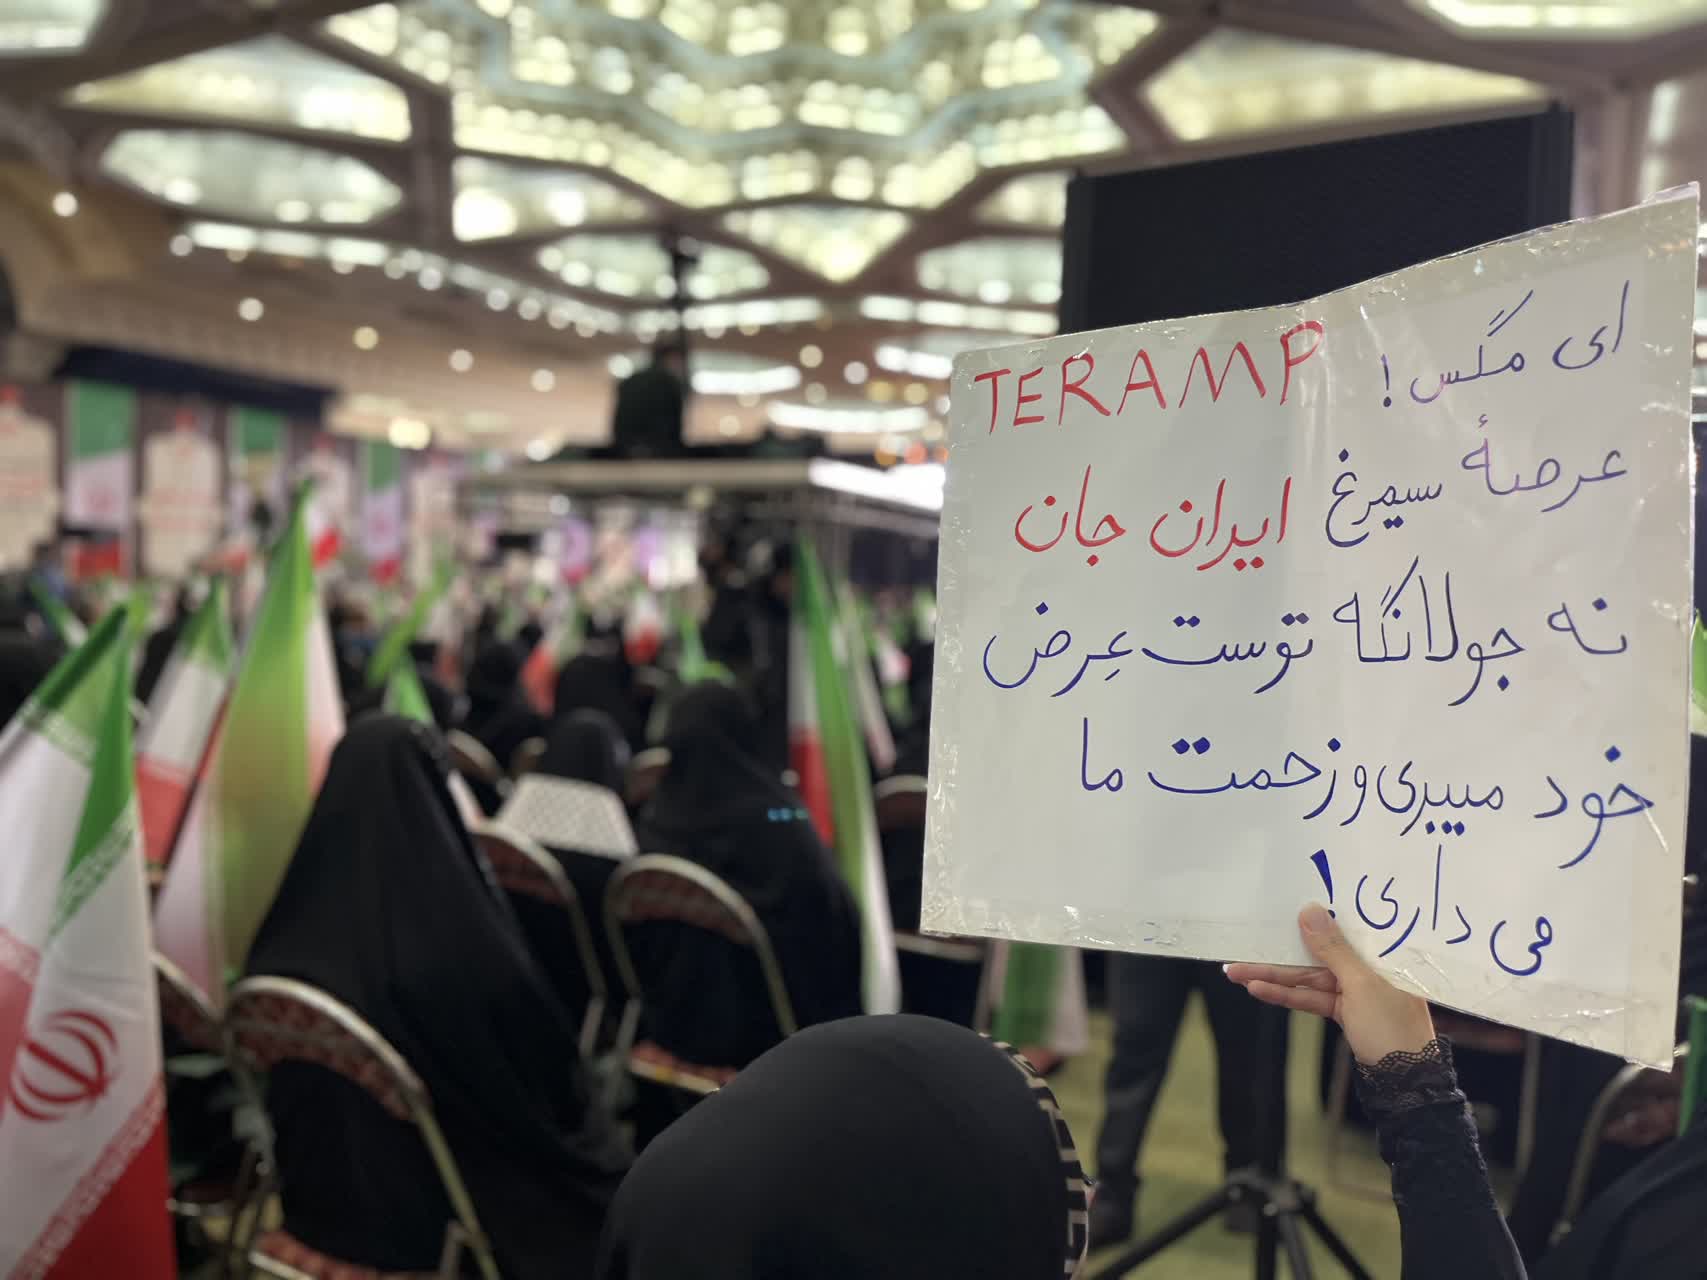 ای مگس! TERAMP
عرصهٔ سیمرغ ایران جان
نه جولانگه توست عِرض
خود میبری و زحمت ما
می داری!